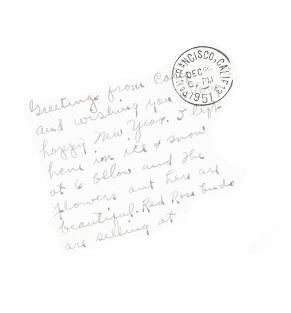 SAN FRANCISCO, CALIF.
DEC
PM
1951
Greetings from Cal
and wishing you
happy New Year. I left
home in ice & snow
at 6 below and the
flowers out here are
beautiful. Red Rose buds
are selling at